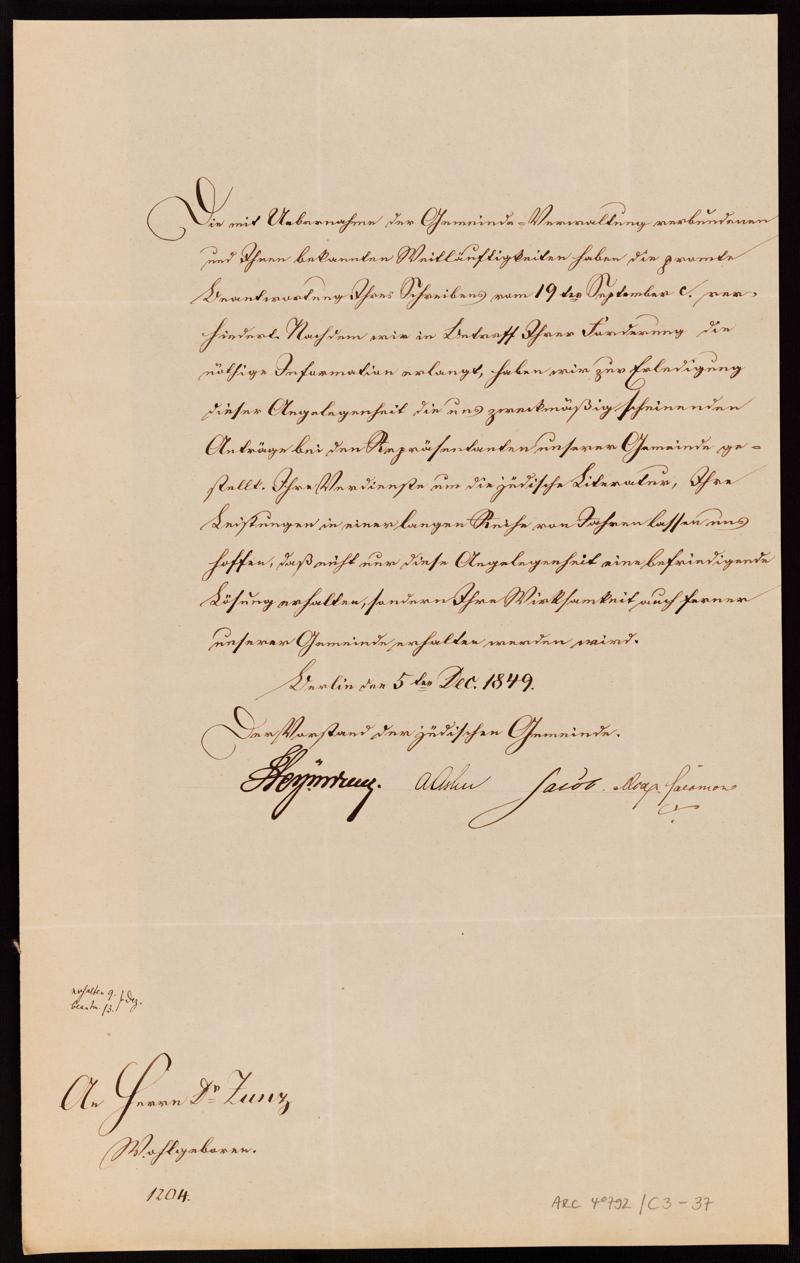 Die mit Uebernahme der Gemeinde-Verwaltung verbundenen
und Ihnen bekannten Weitläuftigkeiten haben die promte
Beantwortung Ihres Schreibens vom 19ten September c. ver-
hindert. Nachdem wir in Betreff Ihrer Forderung die
nöthige Information erlangt, haben wir zur Erledigung
dieser Angelegenheit die uns zweckmäßig scheinenden
Anträge bei den Repräsentanten unserer Gemeinde ge-
stellt. Ihre Verdienste um die jüdische Literatur, Ihre
Leistungen in einer langen Reihe von Jahren lassen uns
hoffen, daß nicht nur diese Angelegenheit eine befriedigende
Lösung erhalten, sondern Ihre Wirksamkeit auch ferner
unserer Gemeinde erhalten werden wird.
Berlin den 5ten Dec. 1849.
Der Vorstand der jüdischen Gemeinde.
Heymann. AAsher Jacob. Salomon
erhalten 9. Dez.
beantw. 13.
An Herrn Dr Zunz
Wohlgeboren.
1204.
ARC 4°792/C3-37